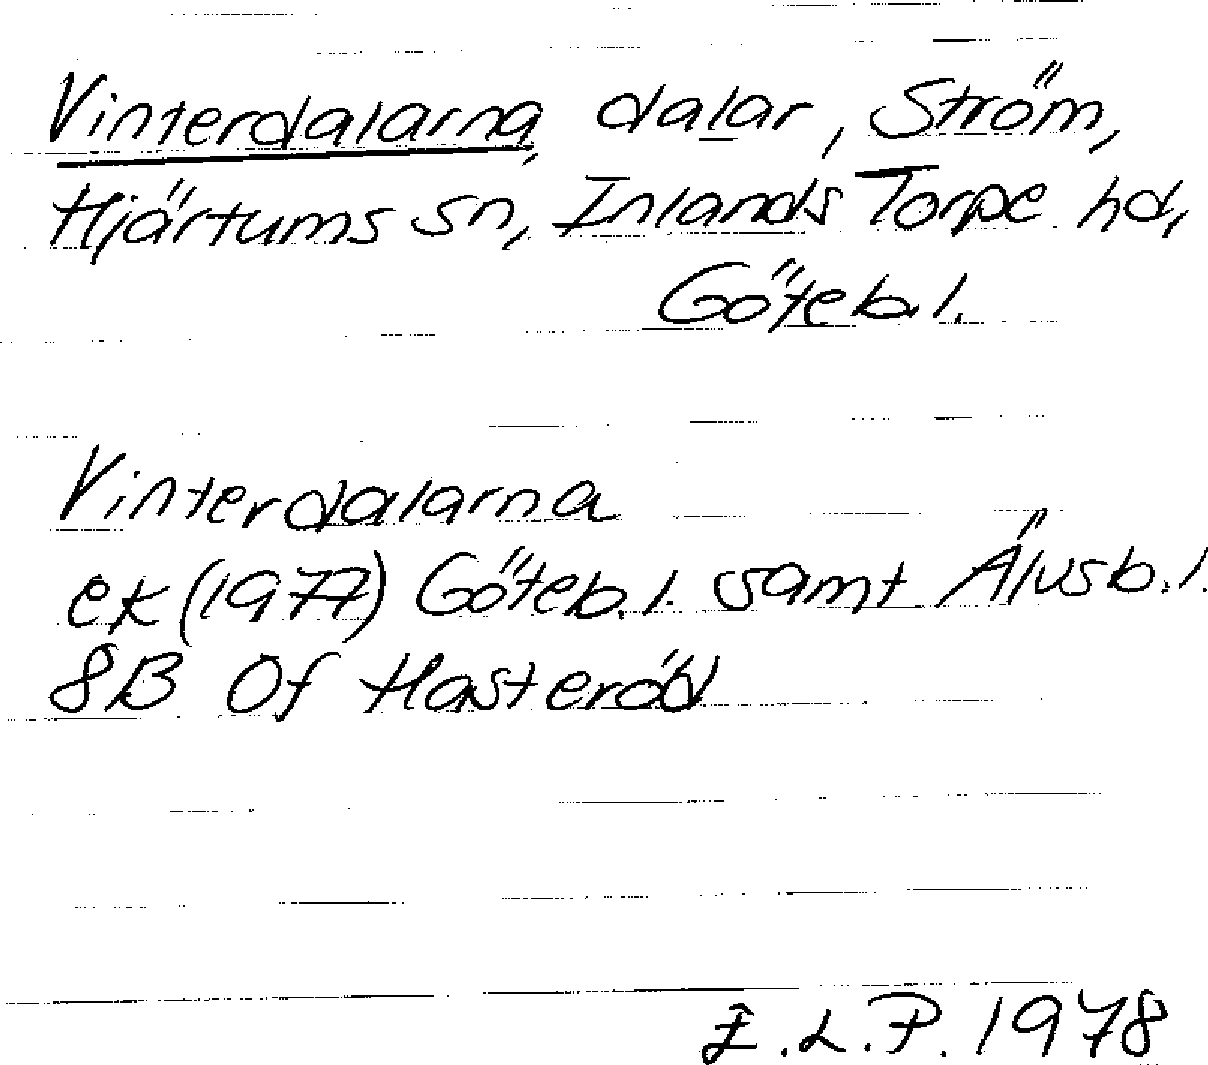 Vinterdalarna, dalar, Ström,
Hjärtums sn, Inlands Torpe hd,
Göteb. l.
Vinterdalarna
ek (1977) Göteb. l. samt Älvsb. l.
8B 0f Hasteröd
E.L.P. 1978